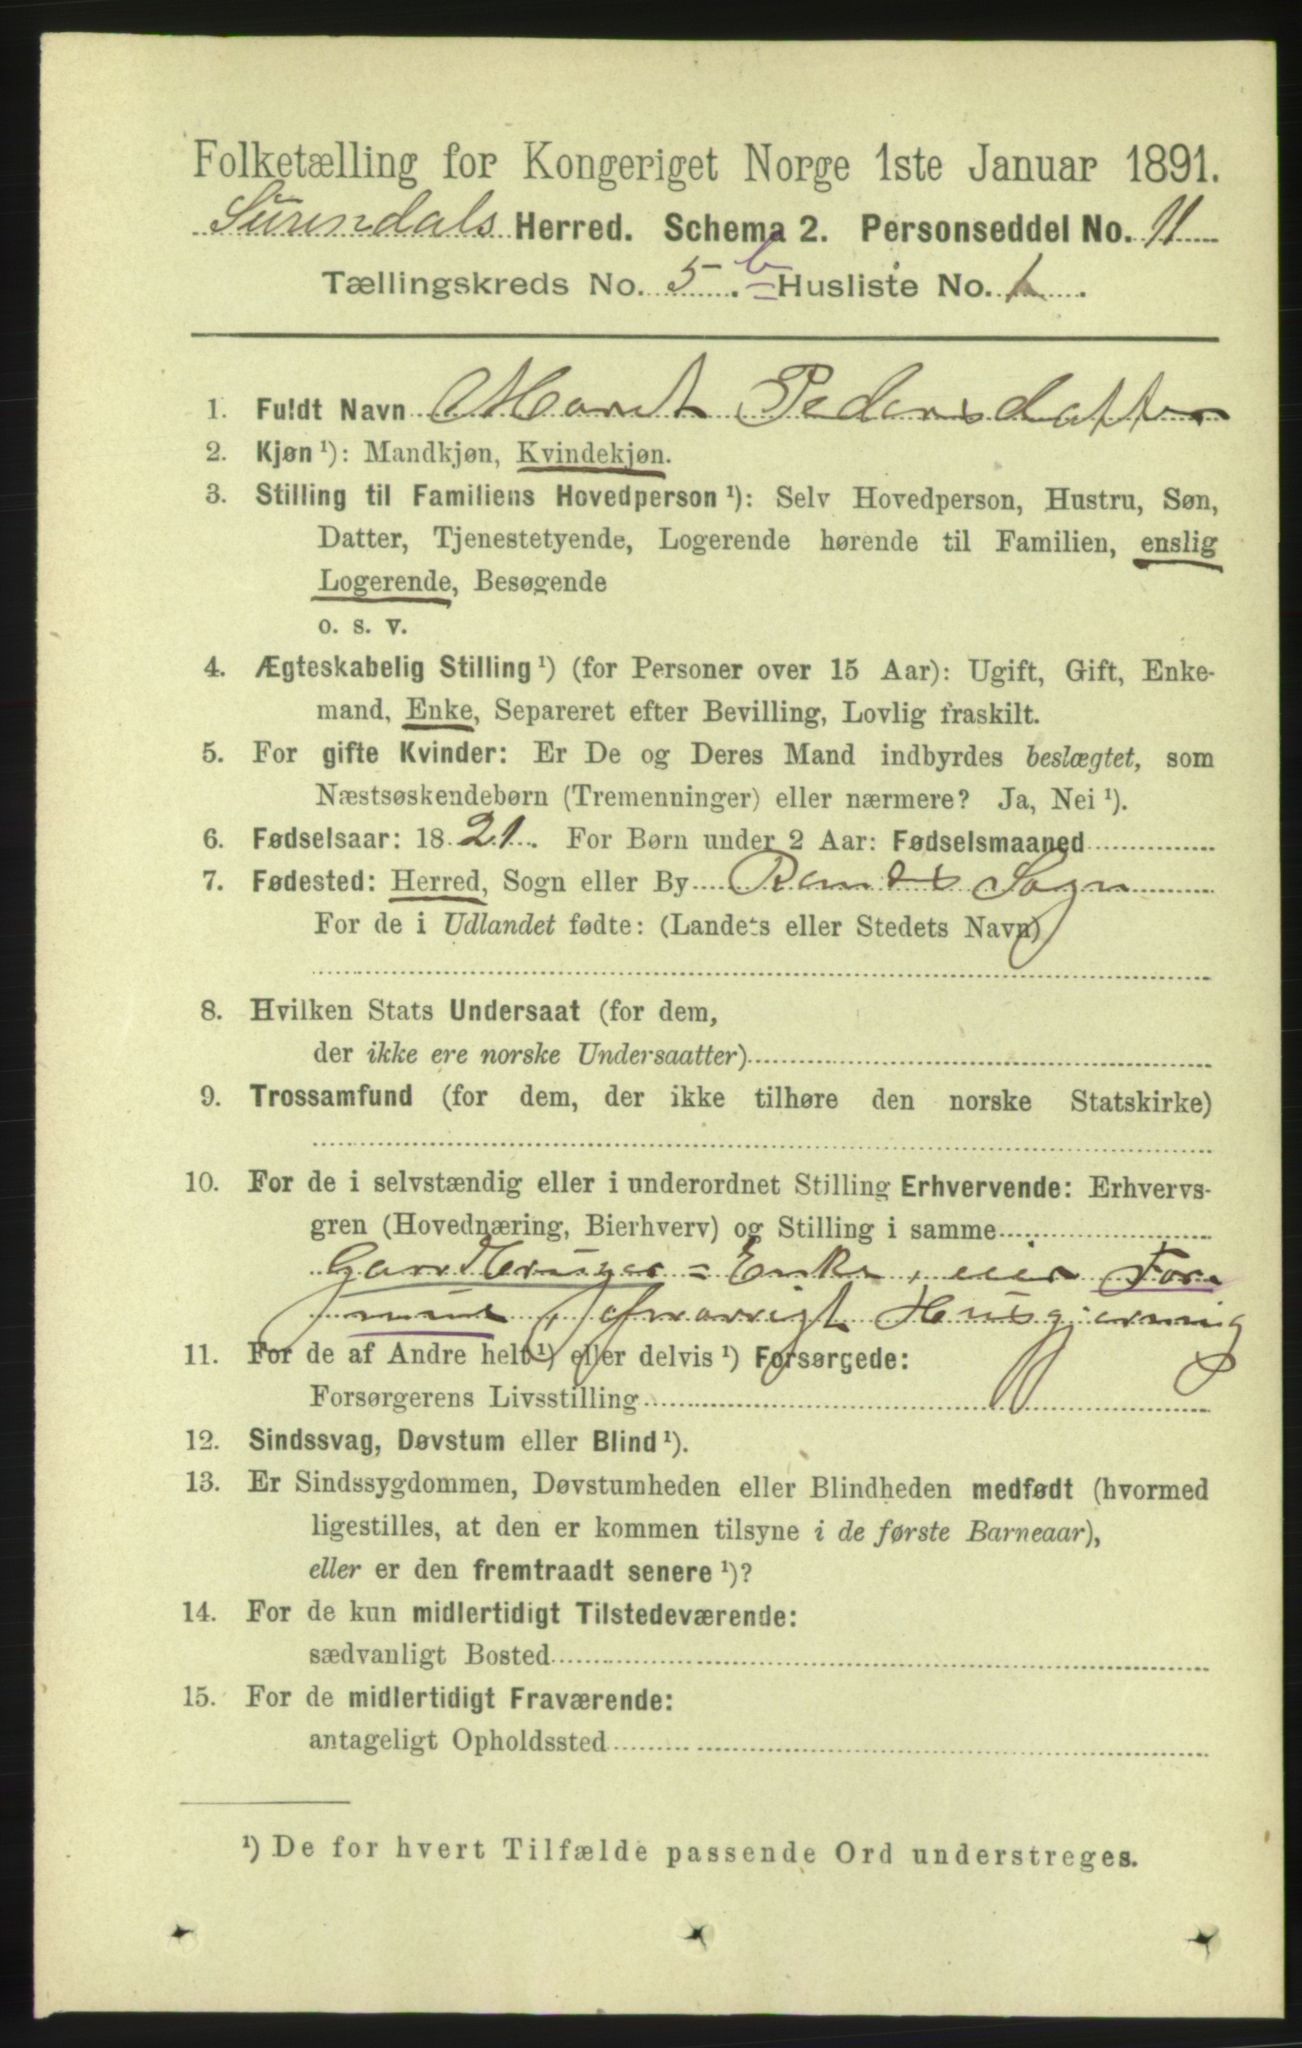 Folketælling for Kongeriget Norge 1ste Januar 1891.
Surendals Herred. Schema 2. Personseddel No. 11
Tællingskreds No. 5 b Husliste No. 1
1. Fuldt Navn Marit Pedersdatter
2. Kjøn ¹): Mandkjøn, Kvindekjøn.
3. Stilling til Familiens Hovedperson ¹): Selv Hovedperson, Hustru, Søn,
Datter, Tjenestetyende, Logerende hørende til Familien, enslig
Logerende, Besøgende
o. s. v.
4. Ægteskabelig Stilling ¹) (for Personer over 15 Aar): Ugift, Gift, Enke-
mand, Enke, Separeret efter Bevilling, Lovlig fraskilt.
5. For gifte Kvinder: Er De og Deres Mand indbyrdes beslægtet, som
Næstsøskendebørn (Tremenninger) eller nærmere? Ja, Nei ¹).
6. Fødselsaar: 1821. For Børn under 2 Aar: Fødselsmaaned
7. Fødested: Herred, Sogn eller By Ranes Sogn
For de i Udlandet fødte: (Landets eller Stedets Navn)
8. Hvilken Stats Undersaat (for dem,
der ikke ere norske Undersaatter)
9. Trossamfund (for dem, der ikke tilhøre den norske Statskirke)
10. For de i selvstændig eller i underordnet Stilling Erhvervende: Erhvervs-
gren (Hovednæring, Bierhverv) og Stilling i samme
Gardbruger = Enke, eier For
mue, forøvrigt Husgjerning
11. For de af Andre helt ¹) eller delvis ¹) Forsørgede:
Forsørgerens Livsstilling
12. Sindssvag, Døvstum eller Blind ¹).
13. Er Sindssygdommen, Døvstumheden eller Blindheden medfødt (hvormed
ligestilles, at den er kommen tilsyne i de første Barneaar),
eller er den fremtraadt senere ¹)?
14. For de kun midlertidigt Tilstedeværende:
sædvanligt Bosted
15. For de midlertidigt Fraværende:
antageligt Opholdssted
¹) De for hvert Tilfælde passende Ord understreges.